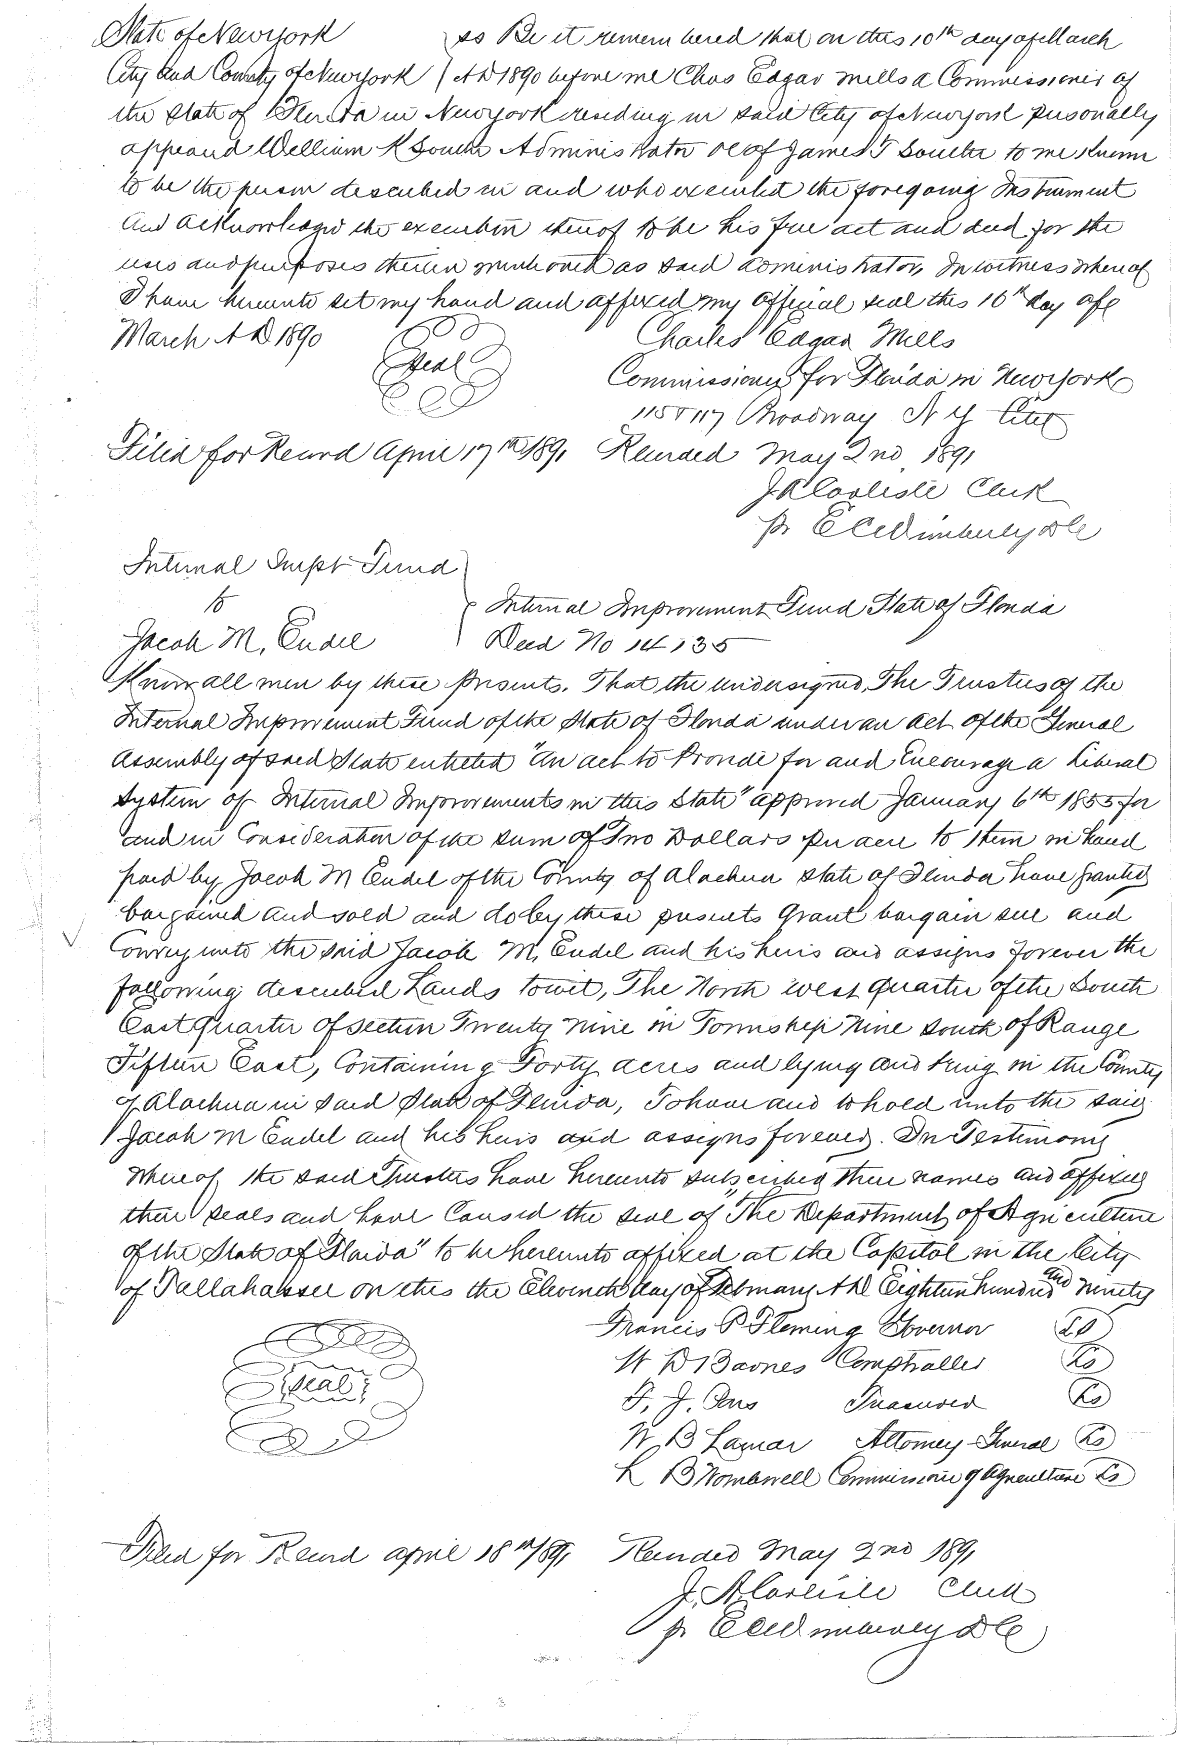 State of New York ss Be it remembered that on this 10th day of March
City and County of New York AD 1890 before me Chas Edgar Mills a Commissioner of
the State of Florida in New York residing in said City of New York personally
appeared William K Soutter Administrator of James T Soutter to me known
to be the person described in and who executed the foregoing Instrument
and acknowledged the execution thereof to be his free act and deed for the
uses and purposes therein mentioned as said administrator, In witness whereof
I have hereunto set my hand and affixed my official seal this 10th day of
March A D 1890 Charles Edgar Mills
Seal
Commissioner for Florida in New York
115 & 117 Broadway N Y City
Filed for Record April 17th 1891 Recorded May 2nd 1891
J A Carlisle Clerk
pr E C Wimberly D C
Internal Impt Fund
to Internal Improvement Fund State of Florida
Jacob M, Endel Deed No 14135
Know all men by these presents. That the undersigned, The Trustees of the
Internal Improvement Fund of the State of Florida under an act of the General
Assembly of said State entitled "An act to Provide for and Encourage a Liberal
System of Internal Improvements in this State" approved January 6th 1855 for
and in Consideration of the sum of Two Dollars per acre to them in hand
paid by Jacob M Endel of the County of Alachua State of Florida, have granted
bargained and sold and do by these presents Grant bargain sell and
Convey unto the said Jacob M, Endel and his heirs and assigns forever the
following described Lands towit, The North west quarter of the South
East quarter of section Twenty Nine in Township Nine South of Range
Fifteen East, Containing Forty acres and lying and being in the County
of Alachua in said State of Florida, To have and to hold unto the said
Jacob M Endel and his heirs and assigns forever. In Testimony
Whereof the said Trustees have hereunto subscribed their names and affixed
their seals and have Caused the seal of "The Department of Agriculture
of the State of Florida" to be hereunto affixed at the Capitol in the City
of Tallahassee on this the Eleventh day of February A D Eighteen hundred and ninety
Francis P Fleming Governor LS
W D Barnes Comptroller LS
Seal
F. J. Pons Treasurer LS
W B Lamar Attorney General LS
L B Wombwell Commissioner of Agriculture LS
Filed for Record April 18th/891 Recorded May 2nd 1891
J. A Carlisle Clerk
pr E C Wimberly D C